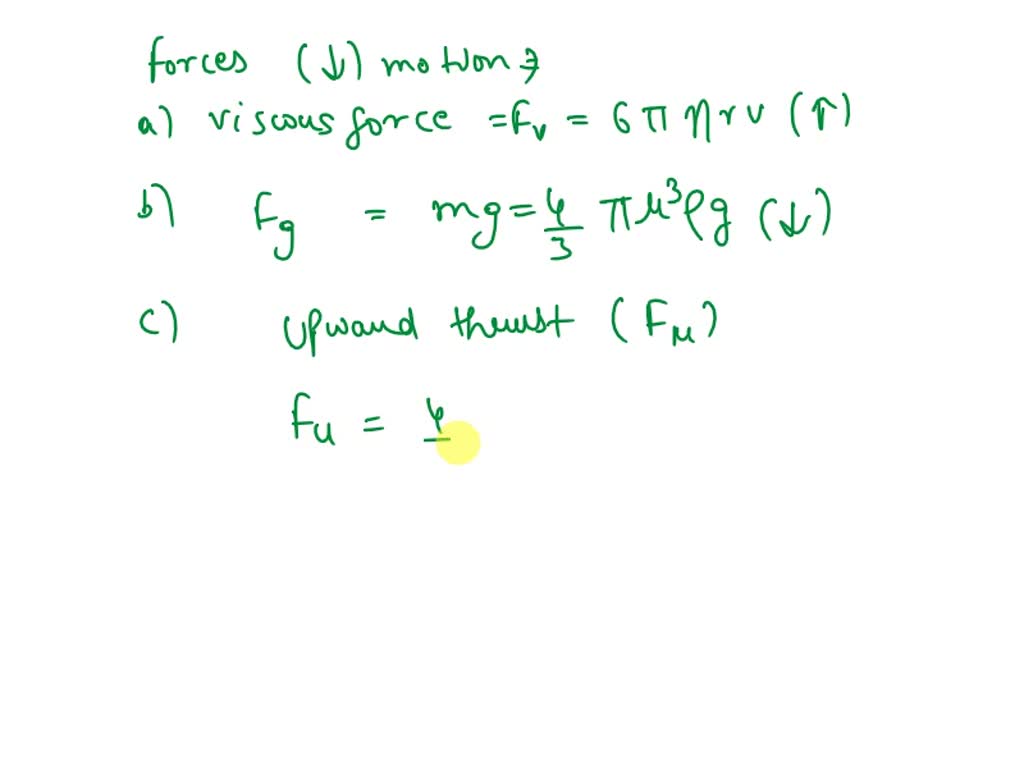 forces (↓) motion ⇒
a) viscous force = Fv = 6 π η r v (↑)
b) Fg = mg = 4/3 π r³ ρg (↓)
c) upward thrust (Fu)
Fu = 4